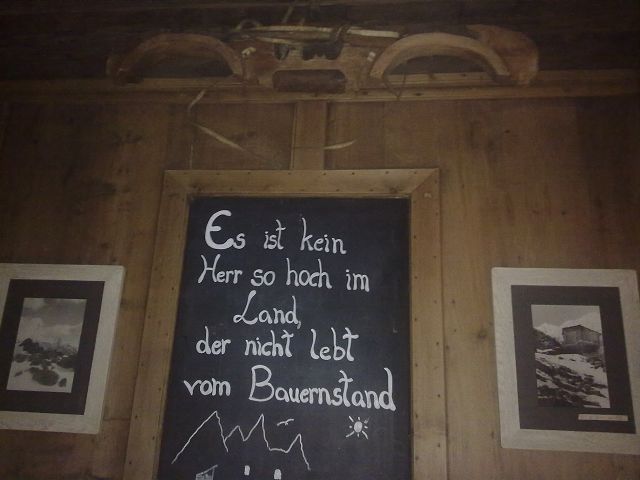 Es ist kein
Herr so hoch im
Land,
der nicht lebt
vom Bauernstand